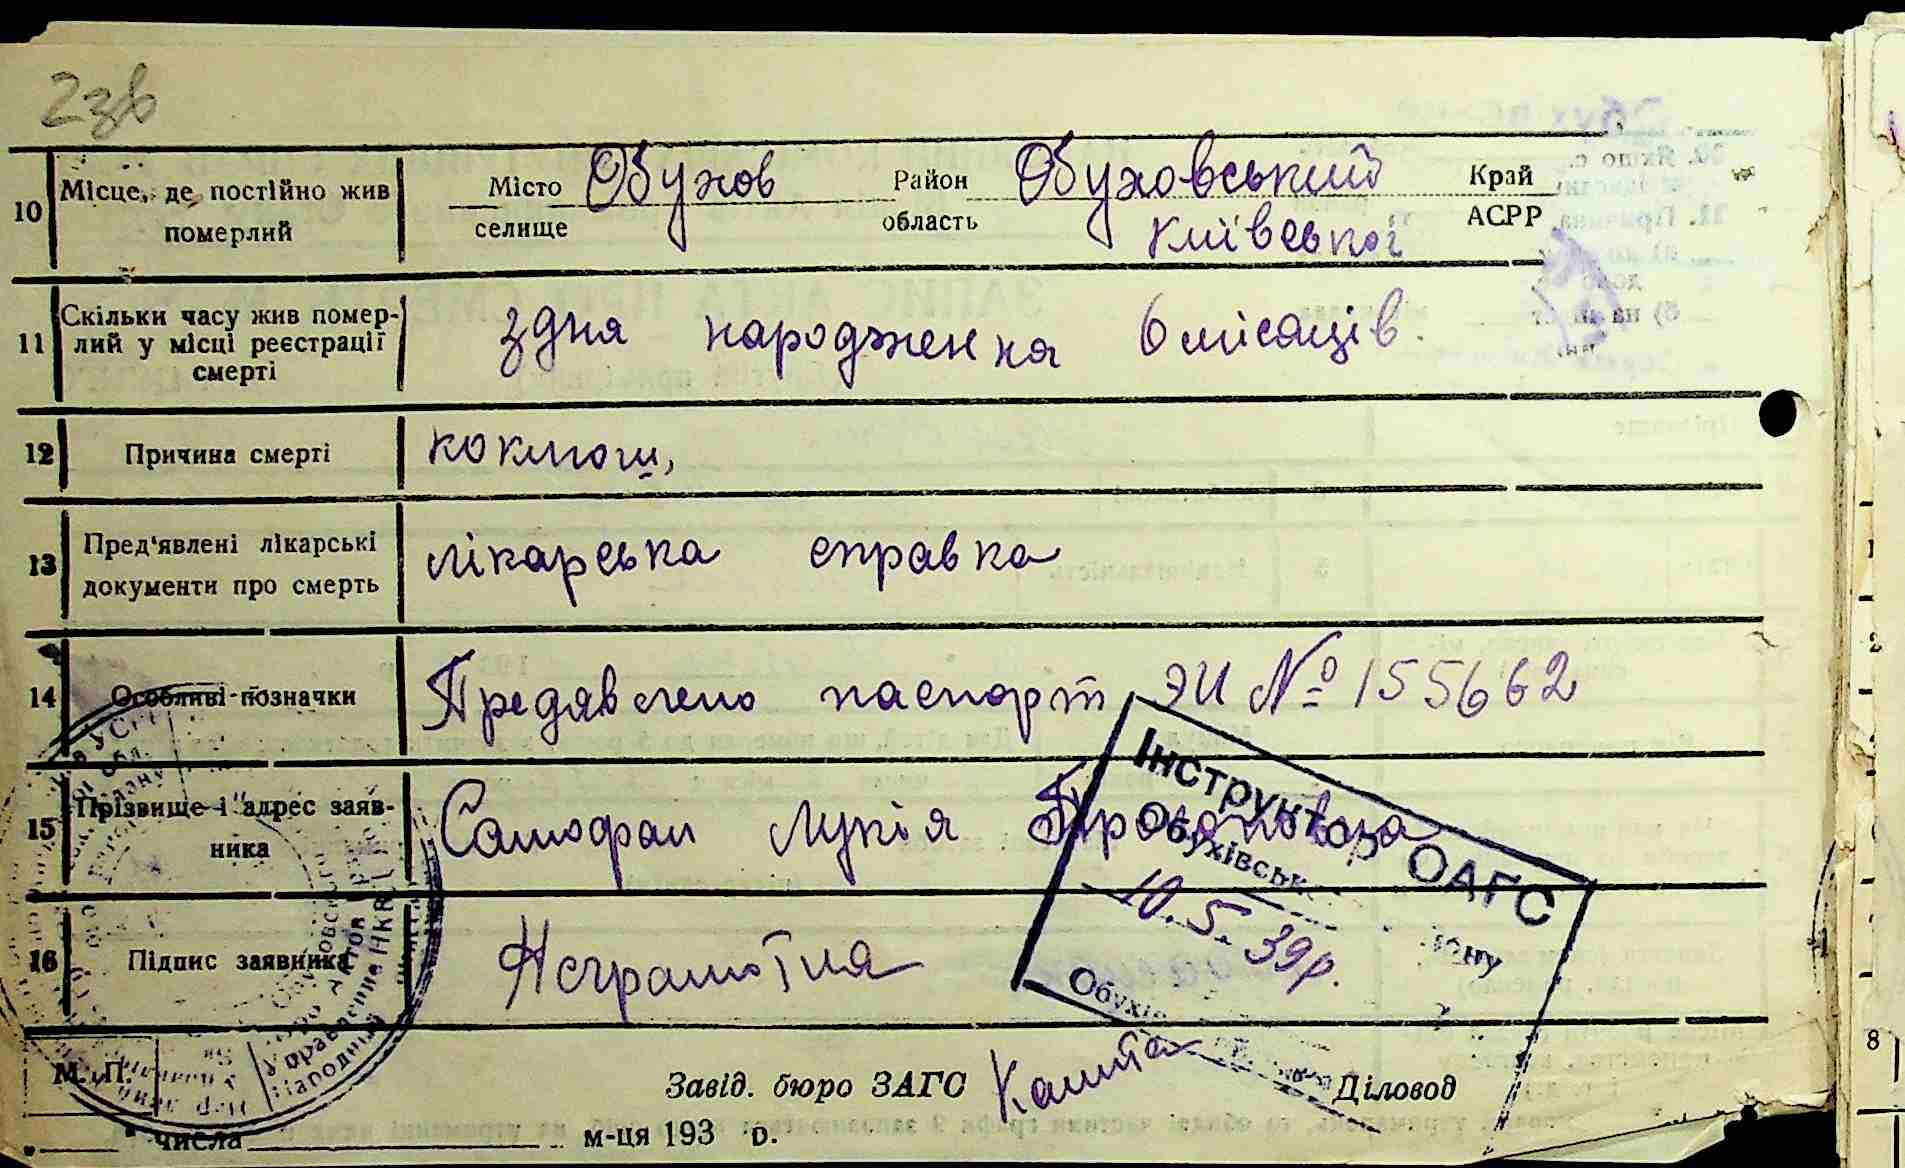 23в
10 Місце, де постійно жив померлий
Місто селище Обухов Район область Обуховський Київської Край АСРР
11 Скільки часу жив помер-
лий у місці реєстрації
смерті
з дня народження 6 місяців.
12 Причина смерті коклюш,
13 Пред'явлені лікарські
документи про смерть
лікарська справка
14 Особливі позначки Предявлено паспорт ЭИ № 155662
15 Прізвище і адрес заяв-
ника
Самофал Лукія
16 Підпис заявника Неграмотна
Інструктор ОАГС
Обухівськ
10.5.39р.
М. П.
Завід. бюро ЗАГС Діловод
" числа м-ця 193 р.
8